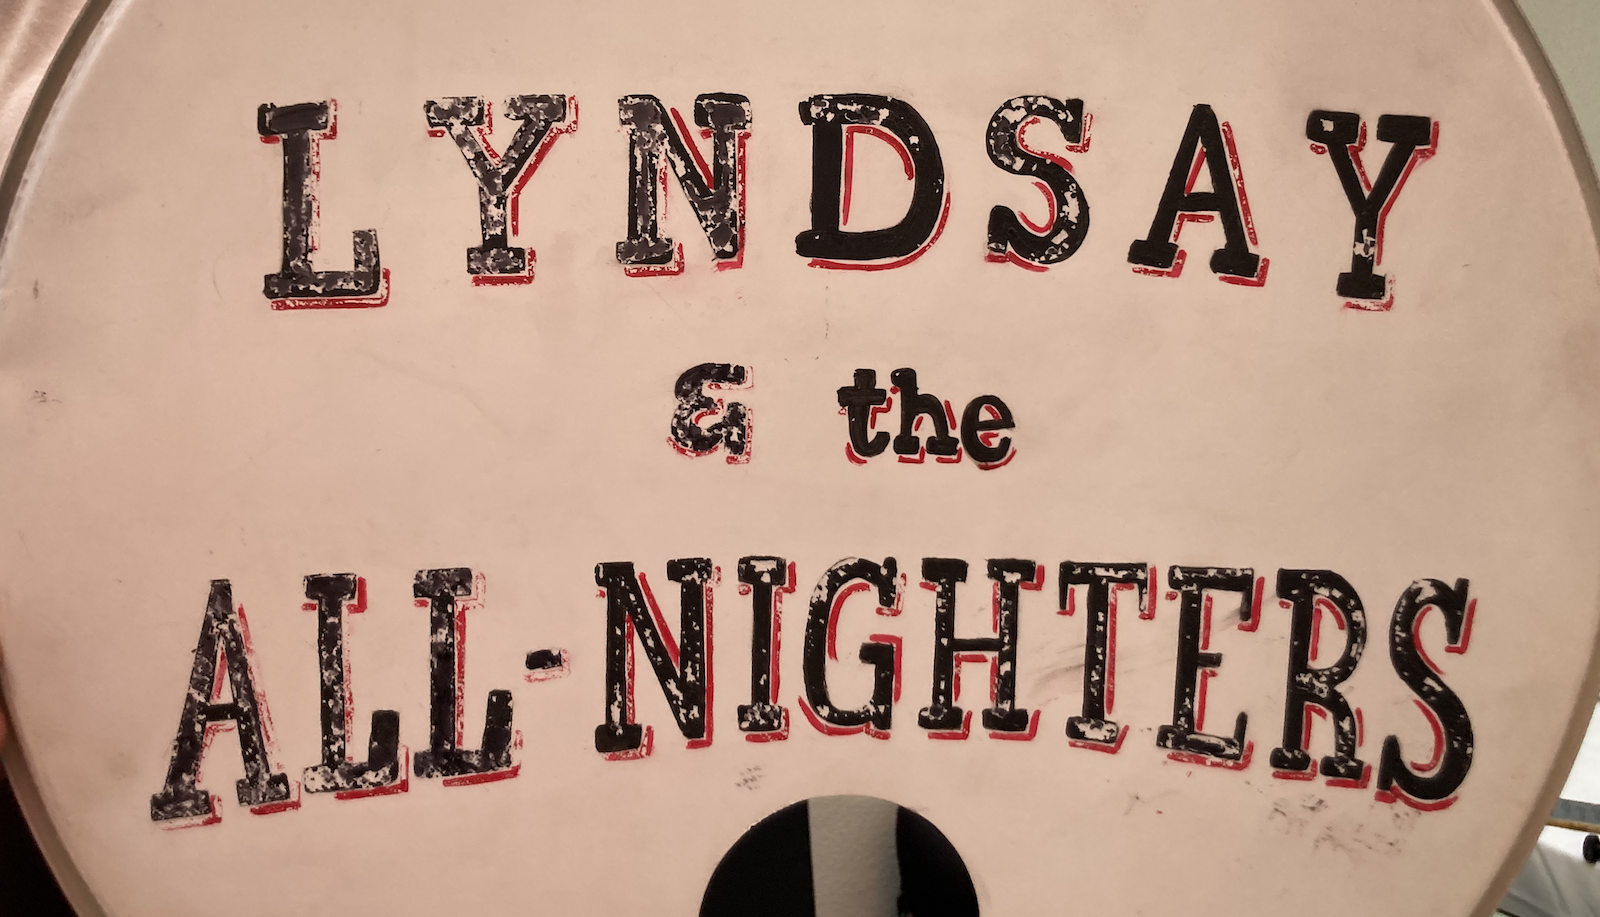 LYNDSAY
& the
ALL-NIGHTERS